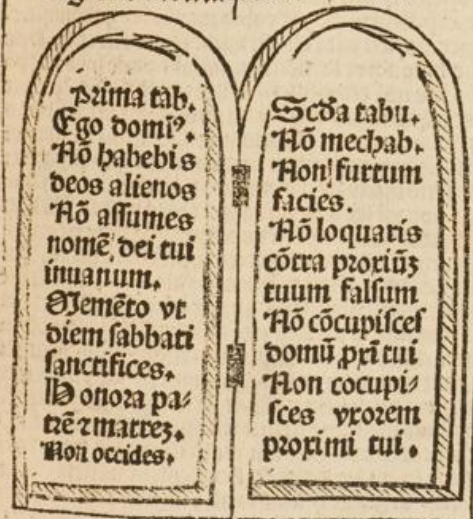 Prima tab.
Ego domi⁹.
Nō habebis
deos alienos
Nō assumes
nomē dei tui
inuanum.
Memēto vt
diem sabbati
sanctifices.
Honora pa⸗
trē ⁊ matreꝫ.
Non occides.
Scd̄a tabu.
Nō mechab.
Non furtum
facies.
Nō loquaris
cōtra proxiūꝫ
tuum falsum
Nō cōcupisces
domū ꝓxī tui
Non cocupi⸗
sces vxorem
proximi tui.